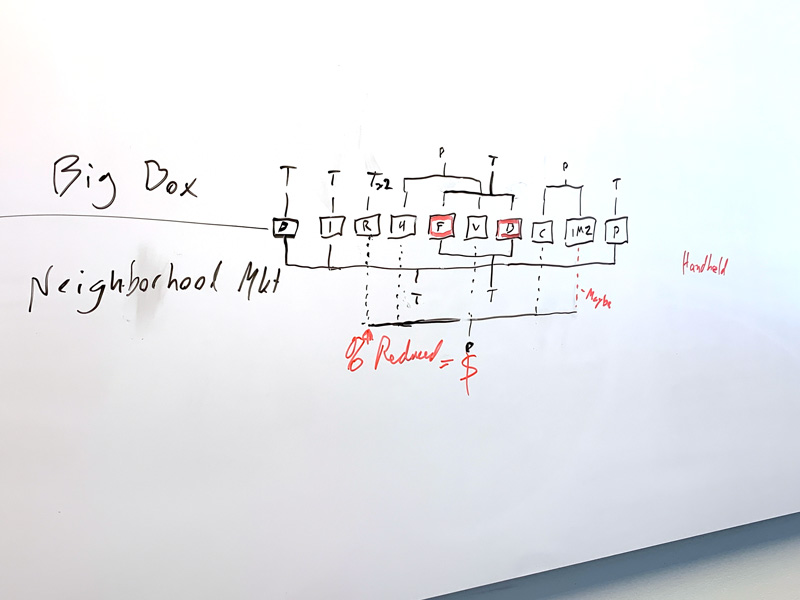 P T P
T T T>2 T
Big Box
D I R H F V D C IM2 P
Neighborhood Mkt
Handheld
T T - Maybe
P
% Reduced = $